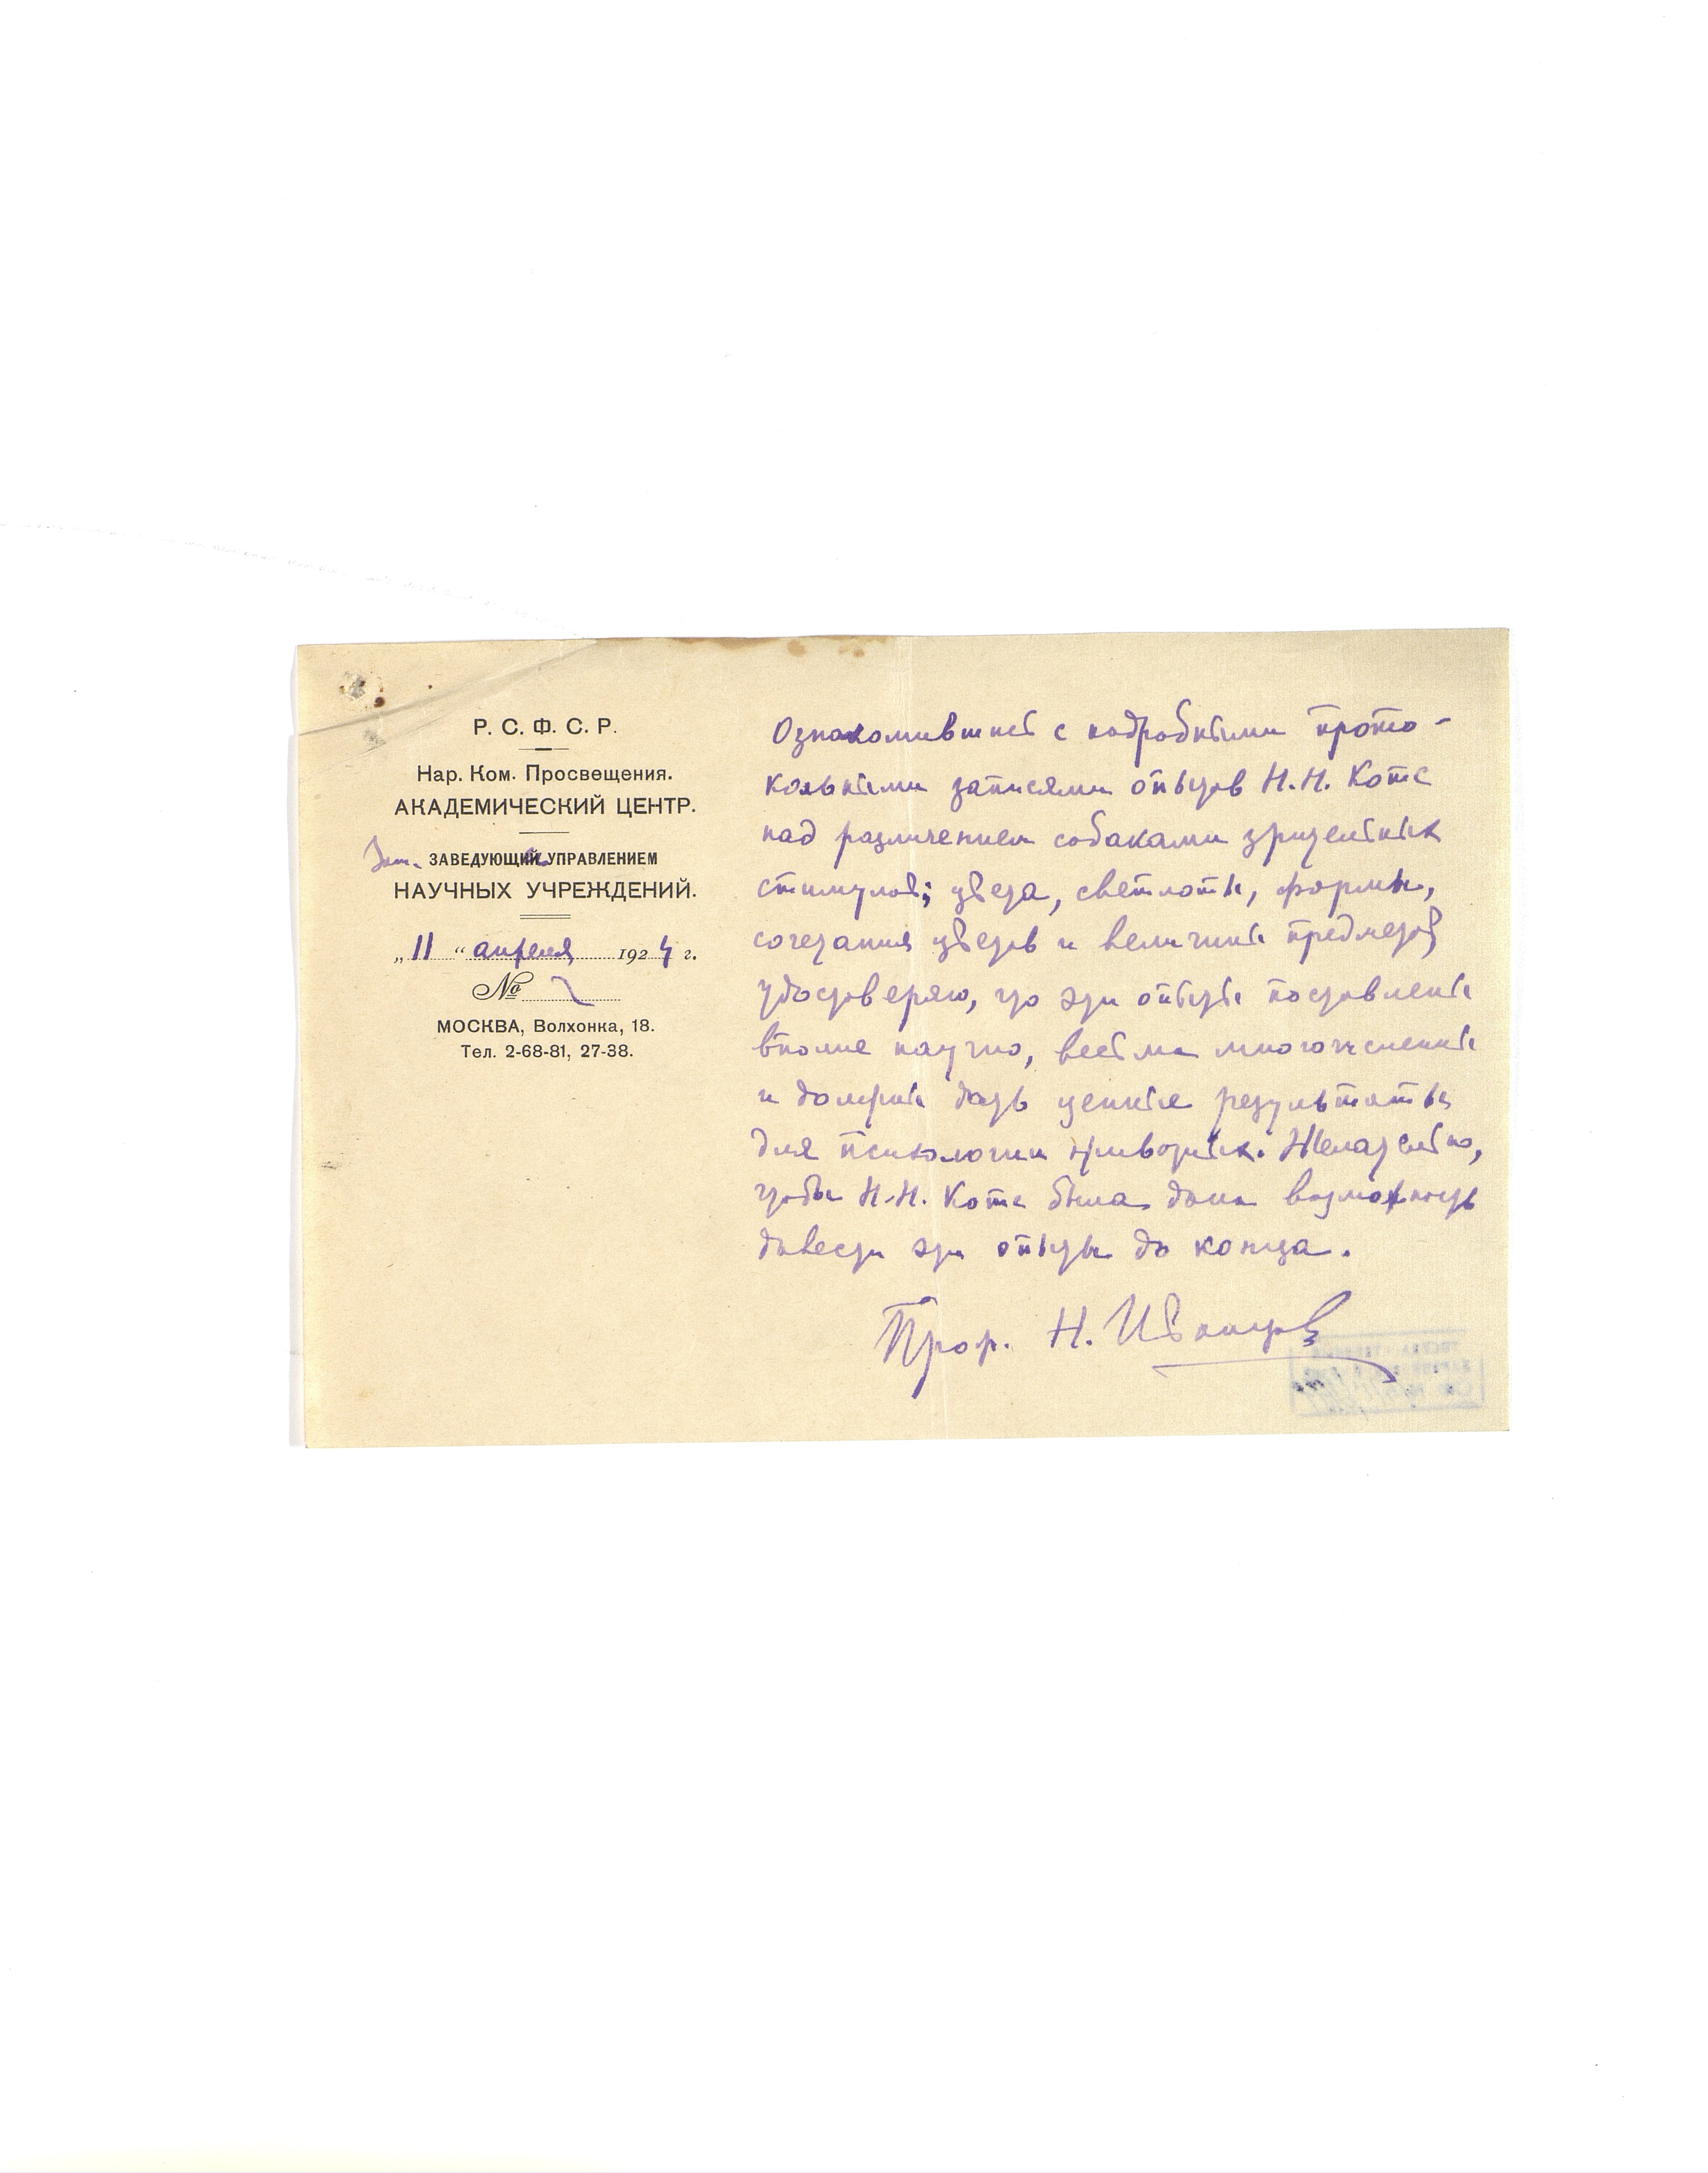 Р. С. Ф. С. Р.
Нар. Ком. Просвещения.
АКАДЕМИЧЕСКИЙ ЦЕНТР.
Зам. ЗАВЕДУЮЩИЙ УПРАВЛЕНИЕМ
НАУЧНЫХ УЧРЕЖДЕНИЙ.
„ 11 “ апреля 1924 г.
№
МОСКВА, Волхонка, 18.
Тел. 2-68-81, 27-38.
Ознакомившись с подробными прото-
кольными записями опытов Н.Н. Котс
над различением собаками зрительных
стимулов; цвета, светлоты, формы,
сочетания цветов и величины предметов,
удостоверяю, что эти опыты поставлены
вполне научно, весьма многочисленны
и должны дать ценные результаты
для психологии животных. Желательно,
чтобы Н.Н. Котс была дана возможность
довести эти опыты до конца.
Проф. Н. Иванцов